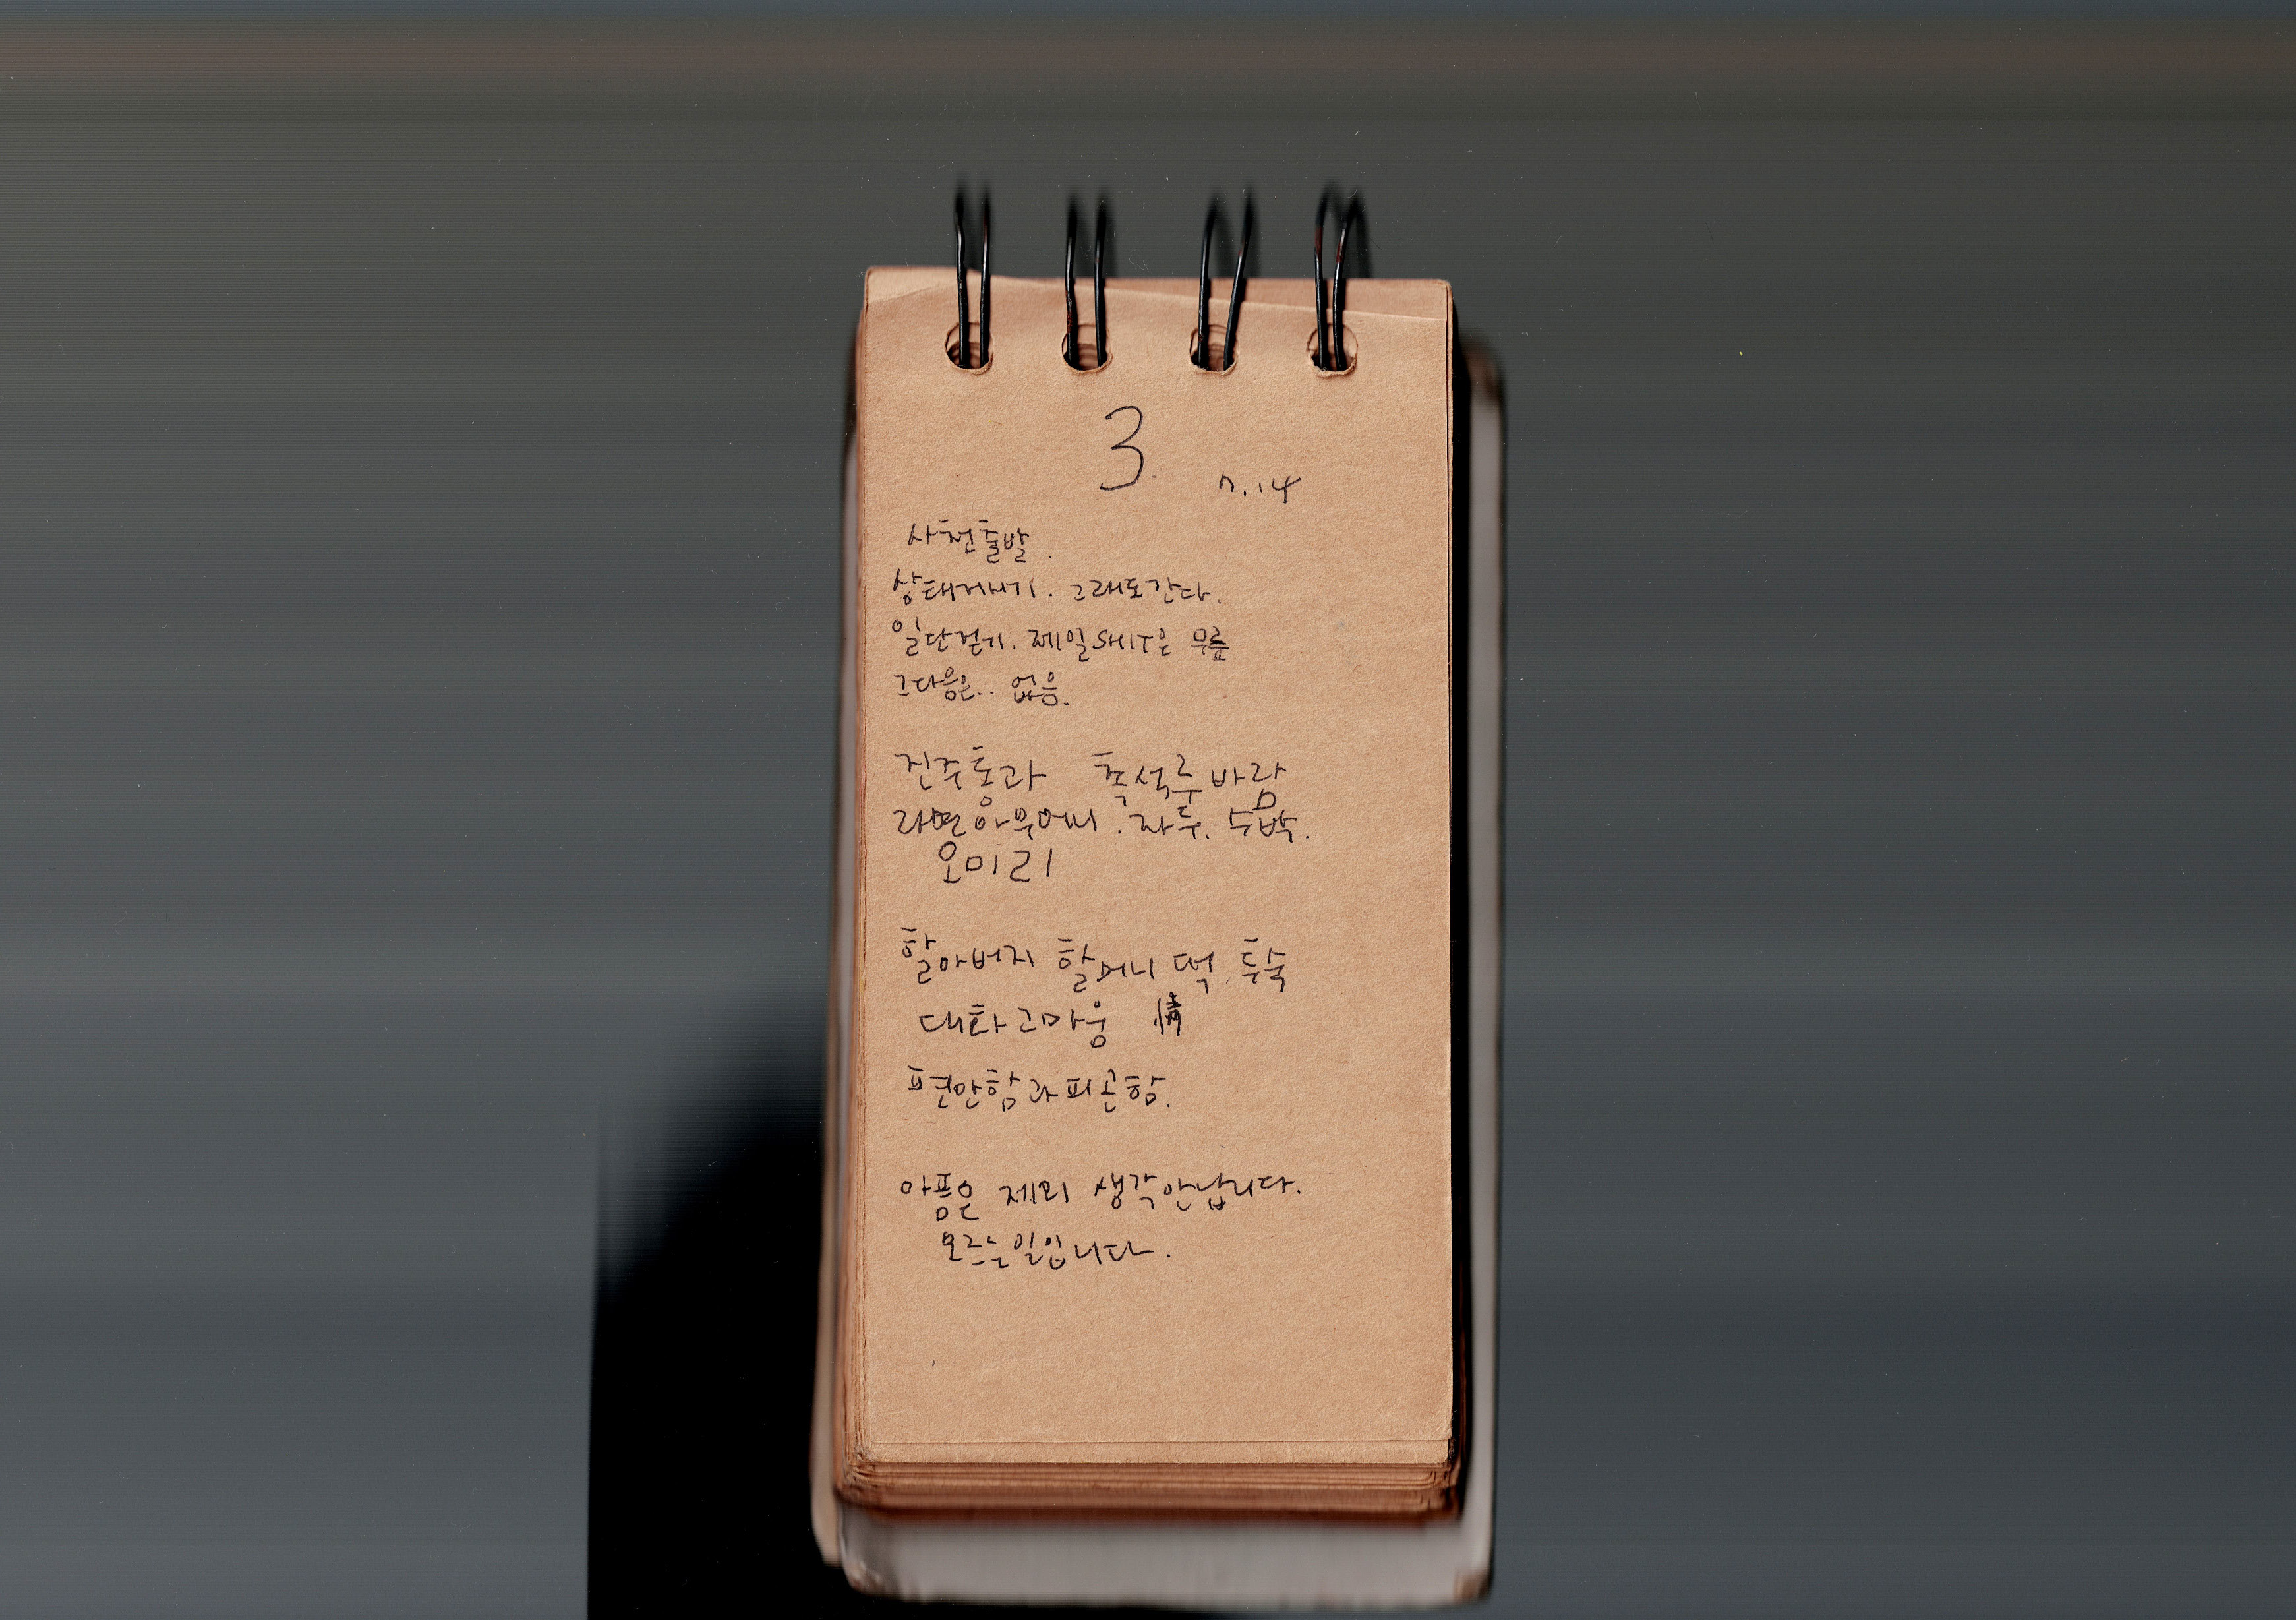 3.
7.14
사천출발.
상태거시기. 그래도간다.
일단걷기. 제일SHIT은 무릎
그다음은.. 없음.
진주통과 촉석루바람
라면아우에씨. 자두. 수박.
오미리
할아버지 할머니 떡, 투숙
대화 고마움 情
편안함과피곤함.
아픔은 제외 생각안납니다.
모르는일입니다.